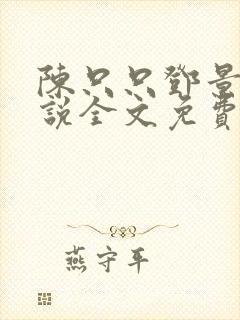 陳只只鄧景
說全文免費
燕守平